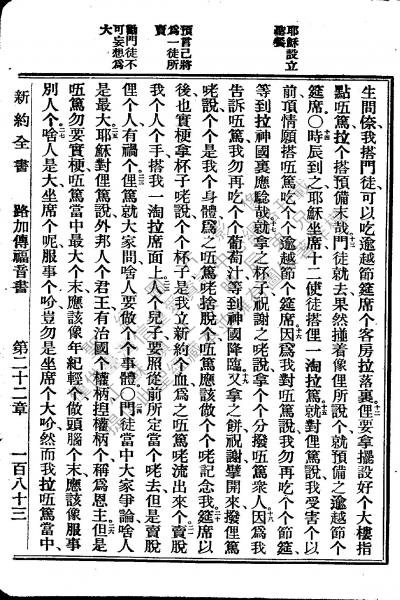 耶穌設立聖餐
預言己將爲一徒所賣
勸門徒不可妄想爲大
生問㑚我搭門徒可以吃逾越節筵席个客房拉落裏十二俚要拿擺設好个大樓指
點唔篤拉个搭預備末哉十三門徒就去果然撞着像俚所說个就預備之逾越節个
筵席○十四時辰到之耶穌坐席十二使徒搭俚一淘拉篤十五就對俚篤說我受害个以
前頂情願搭唔篤吃个个逾越節个筵席十六因爲我對唔篤說我勿再吃个个節筵
等到拉神國裏應騐哉十七就拿之杯子祝謝之咾說拿个个分撥唔篤衆人十八因爲我
告訴唔篤我勿再吃个个葡萄汁等到神國降臨十九又拿之餅祝謝擘開來撥俚篤
咾說个个是我个身體爲之唔篤咾捨脫个唔篤應該做个个咾記念我二十筵席以
後也實梗拿杯子咾說个个杯子是我立新約个血爲之唔篤咾流出來个二一賣脫
我个人个手搭我一淘拉席面上二二人个兒子要照從前所定當个咾去但是賣脫
俚个人有禍个二三俚篤就大家問啥人要做个个事體○二四門徒當中大家爭論啥人
是最大二五耶穌對俚篤說外邦人个君王有治國个權柄揑權柄个稱爲恩主二六但是
唔篤勿要實梗唔篤當中最大个末應該像年紀輕个做頭腦个末應該像服事
別人个二七啥人是大坐席个呢服事个吤豈勿是坐席个大吤然而我拉唔篤當中
新約全書　路加傳福音書　第二十二章　一百八十三